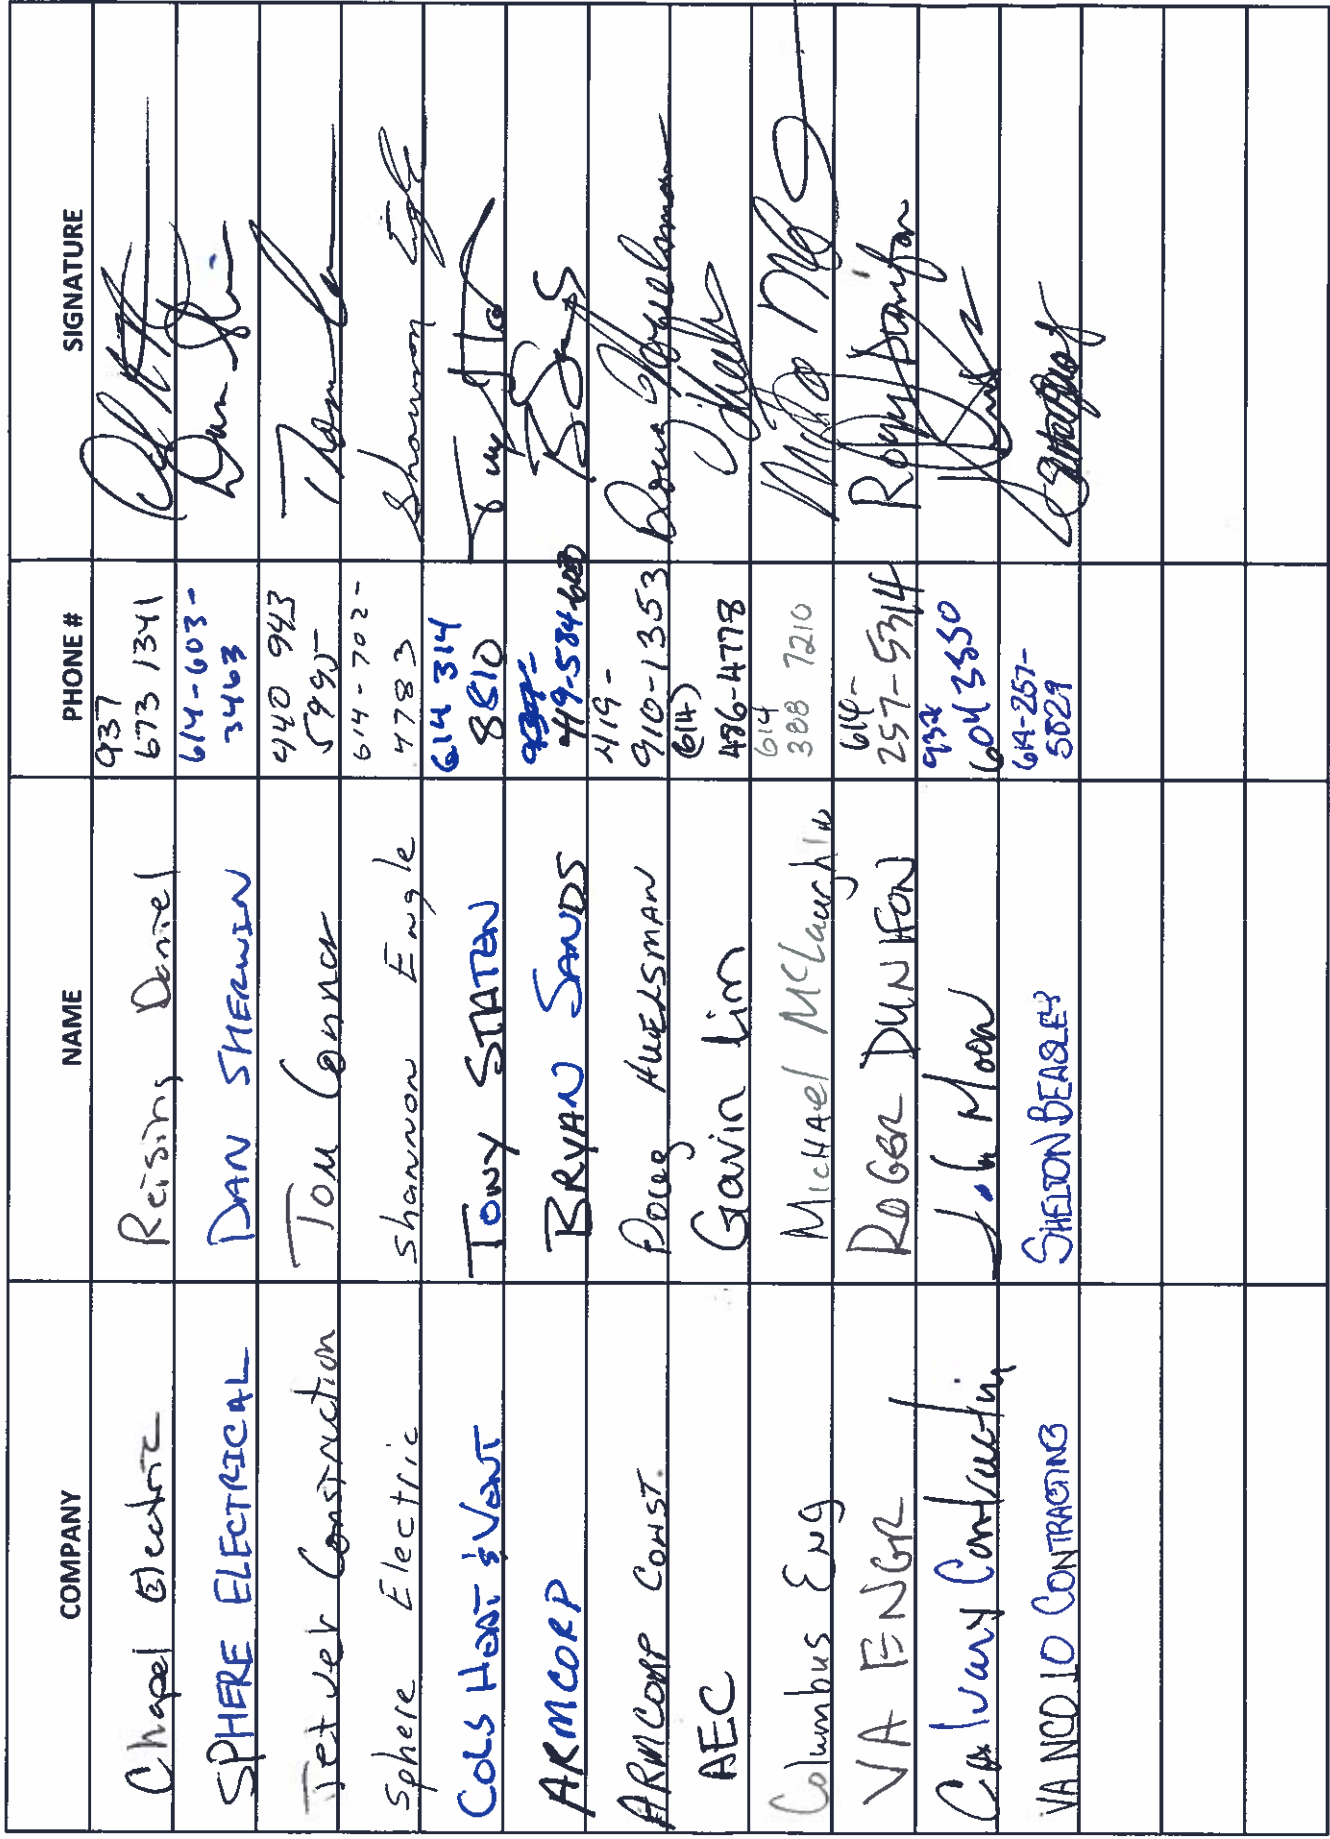 COMPANY NAME PHONE # SIGNATURE
Chapel Electric Reising Daniel 937
673 1341
SPHERE ELECTRICAL DAN SHERWIN 614-603-
3463
Jetvet Construction Tom Conner 440 943
5995
Sphere Electric Shannon Engle 614-702-
4783 Shannon Engle
COLS HEAT & VENT TONY STATEN 614 314
8810
ARMCORP BRYAN SANDS
419-584-
ARMCORP CONST. Doug HUELSMAN 419-
910-1353 Doug Huelsman
AEC Gavin Lim (614)
486-4778
Columbus ENG MICHAEL McLaughlin 614
388 7210
VA ENGR ROGER DUNIFON 614-
257-5314 Roger Dunifon
Calvary Contractin John Moon 937
604 3350
VANCO 10 CONTRACTING SHELTON BEASLEY 614-257-
5029